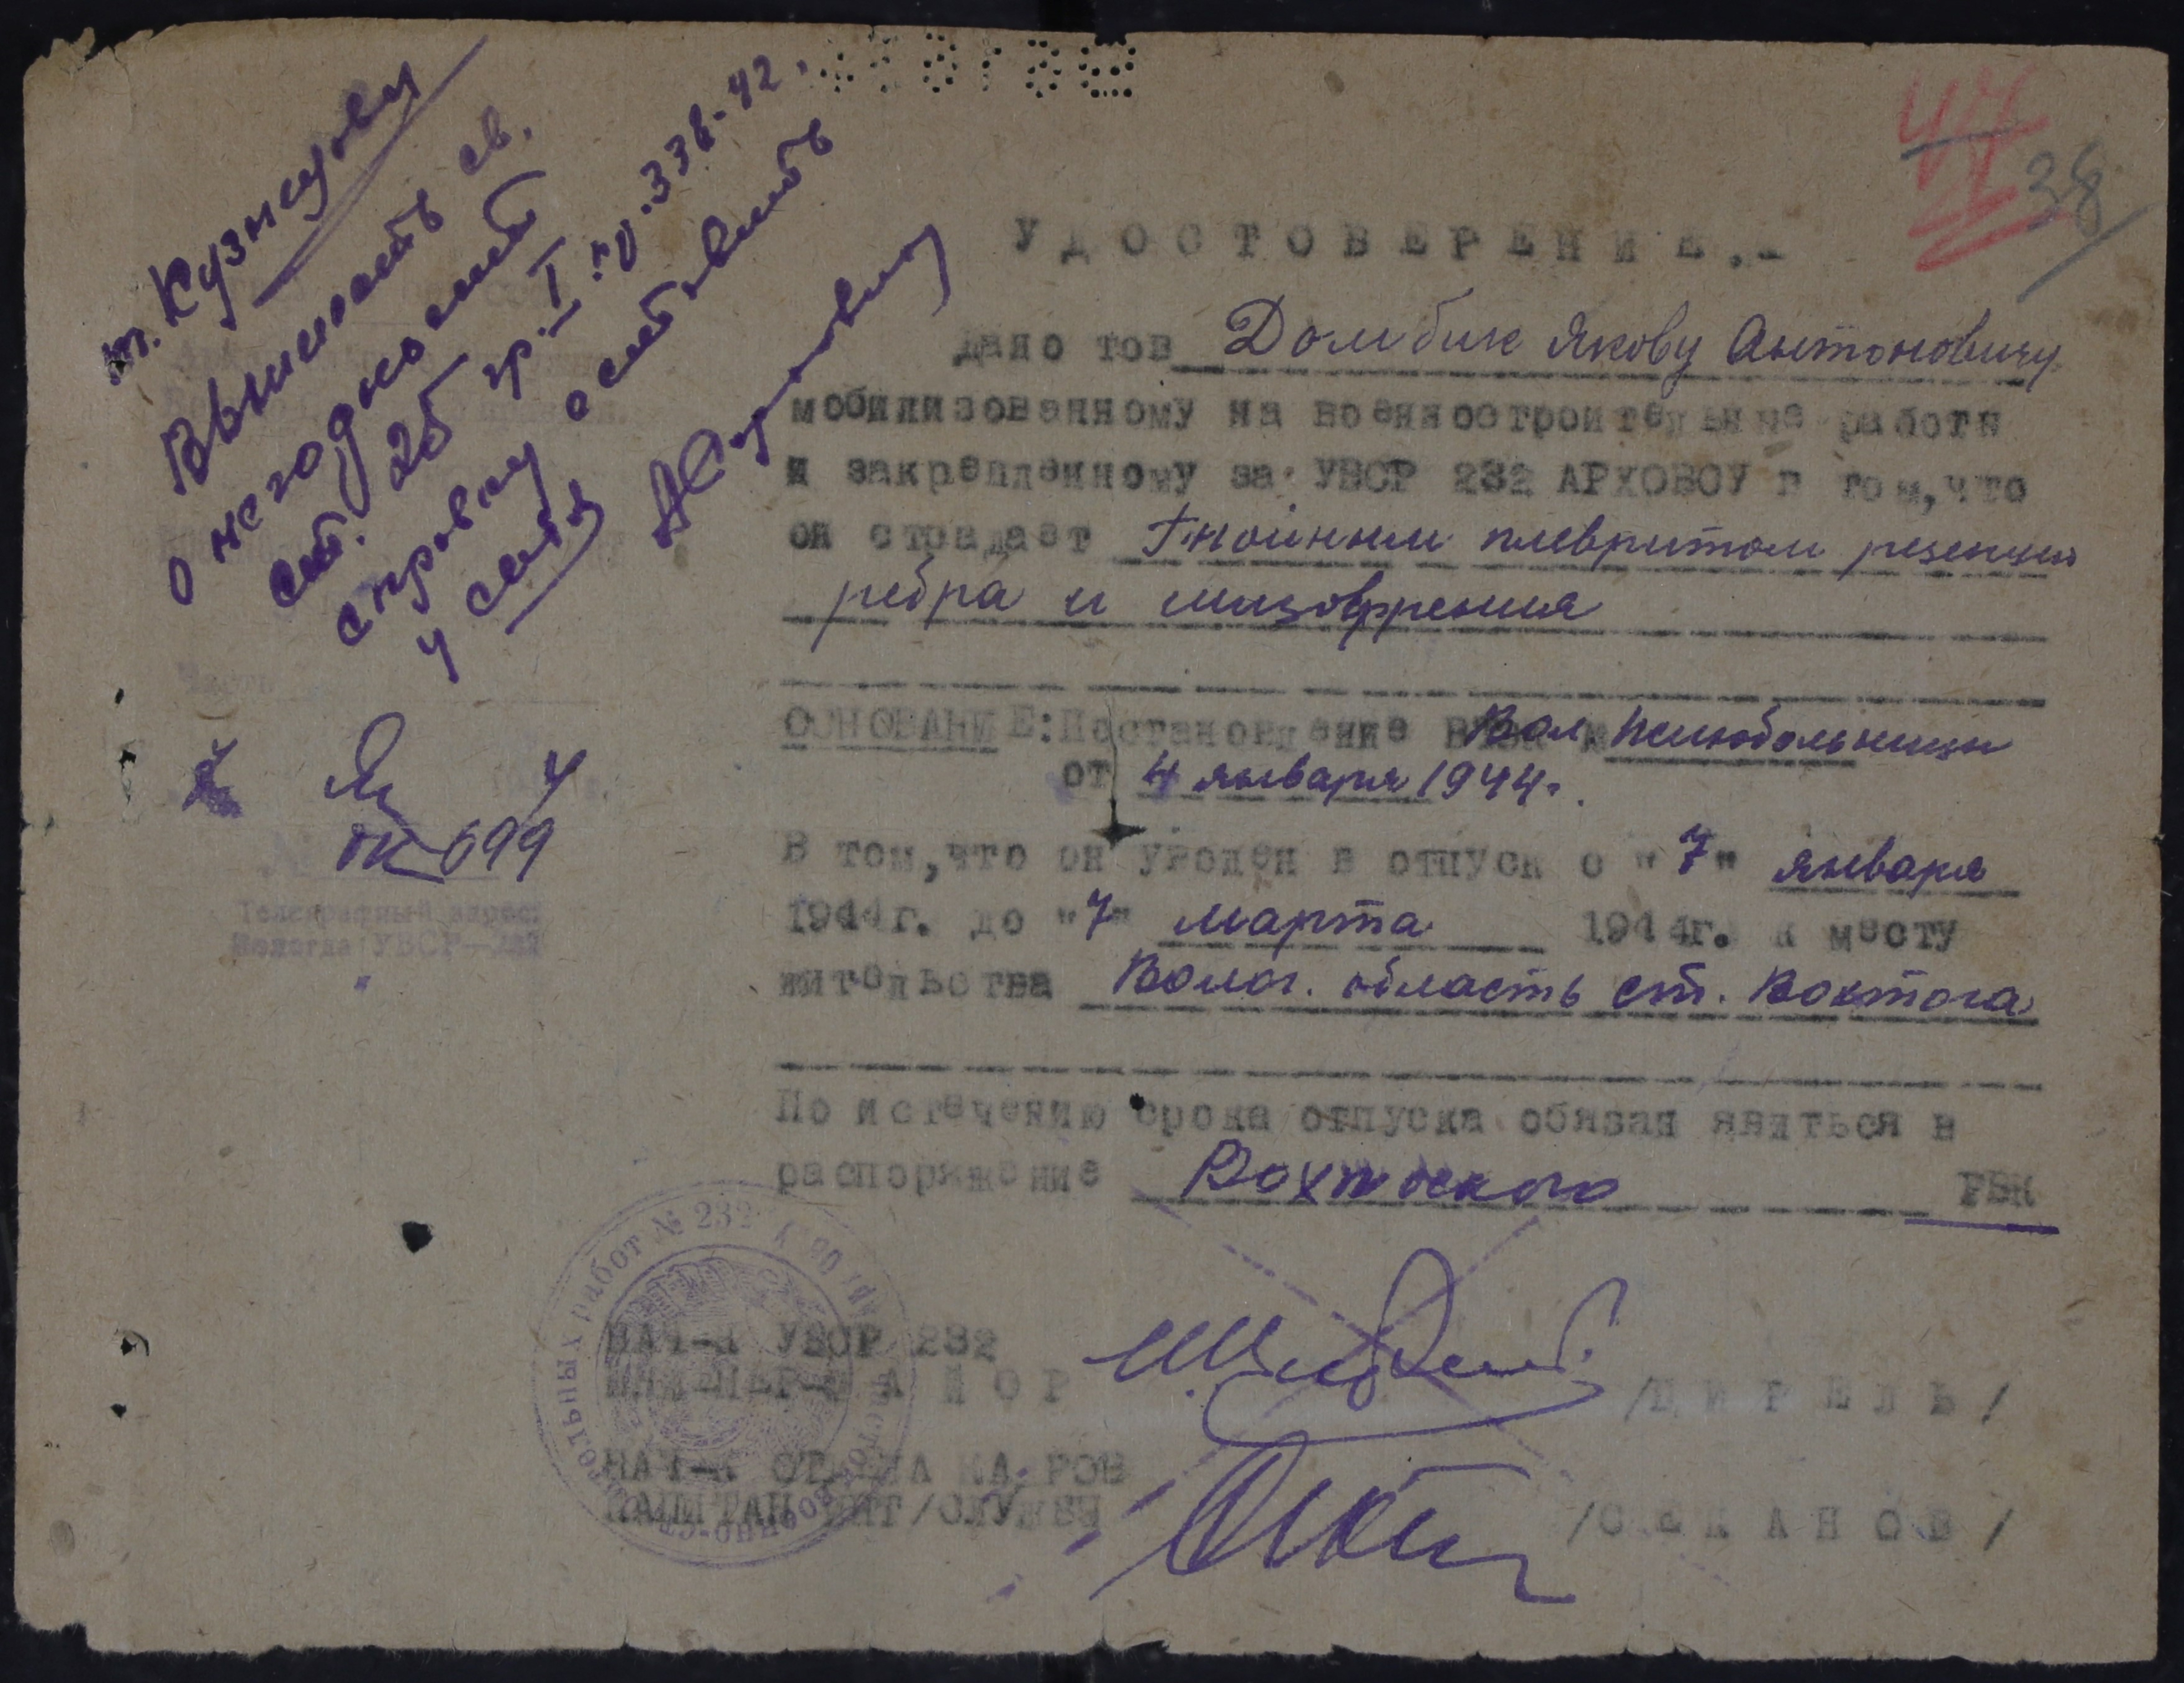 47
38
т. Кузнецову
Выписать св.
о негодности
ст. 25 гр. I пр. 336-42.
справку оставить
у себя
УДОСТОВЕРЕНИЕ.-
дано тов Домбик Якову Антоновичу
мобилизованному на военностроительные работы
и закрепленному за УВСР 232 АРХОВОУ в том, что
он страдает Гнойным плевритом резекция
ребра и шизофрения
ОСНОВАНИЕ: Постановление Вол. психбольницы
от 4 января 1944г.
В том, что он уволен в отпуск с "7" января
1944г. до "7" марта 1944г. к месту
жительства Волог. область ст. Вохтога
По истечению срока отпуска обязан явиться в
распоряжение Вохтогского РВК
Часть
ОК 699
Телеграфный адрес:
Вологда УВСР-232
НАЧ-К УВСР 232
ИНЖЕНЕР-МАЙОР /ЦИГЕЛЬ/
НАЧ-К ОТДЕЛА КАДРОВ
КАПИТАН ИНТ/СЛУЖБЫ /СЕКАНОВ/
строительных работ № 232